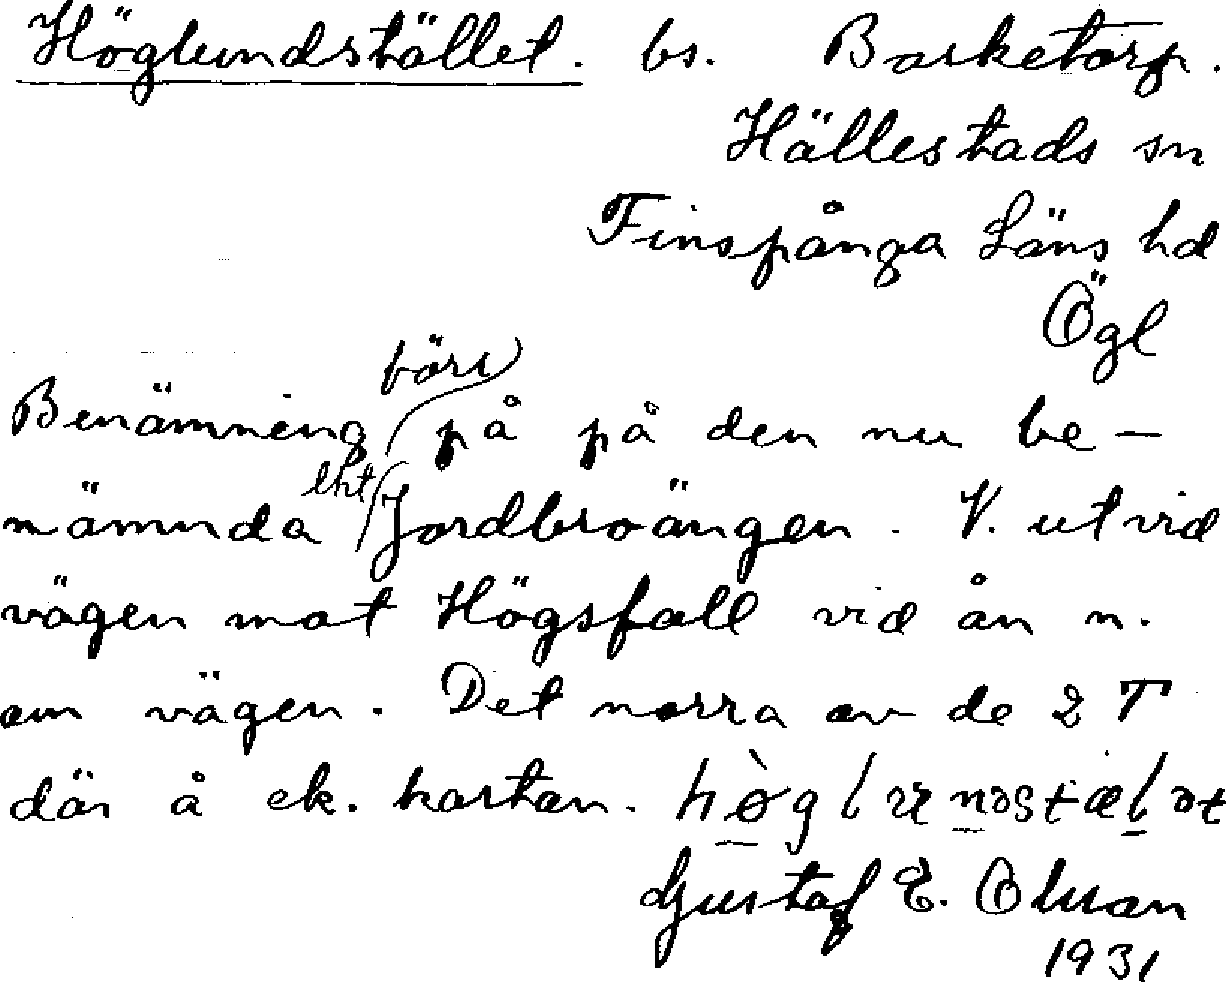 Höglundstället. bs. Borketorp.
Hällestads sn
Finspånga Läns hd
Ögl
förr
Benämning på på den nu be-
lht
nämnda Jordbroängen. V. ut vid
vägen mot Högsfall vid ån n.
om vägen. Det norra av de 2 T
där å ek. kartan.
Gustaf E. Olsson
1931